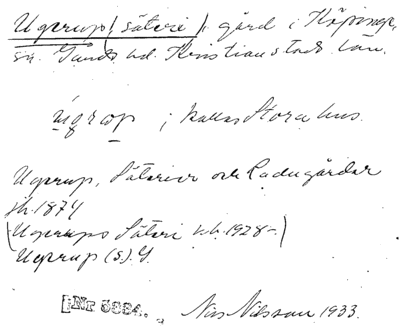 Ugerup (säteri), gård i Köpinge
sn. Gärds hd. Kristianstads län.
ùgrɑp ; kallas Stora hus.
Ugerup, Säterier och Ladugårdar
jb. 1874
(Ugerups Säteri kb. 1928–)
Ugerup (s) G.
Nr 5884.
Nils Nilsson 1933.